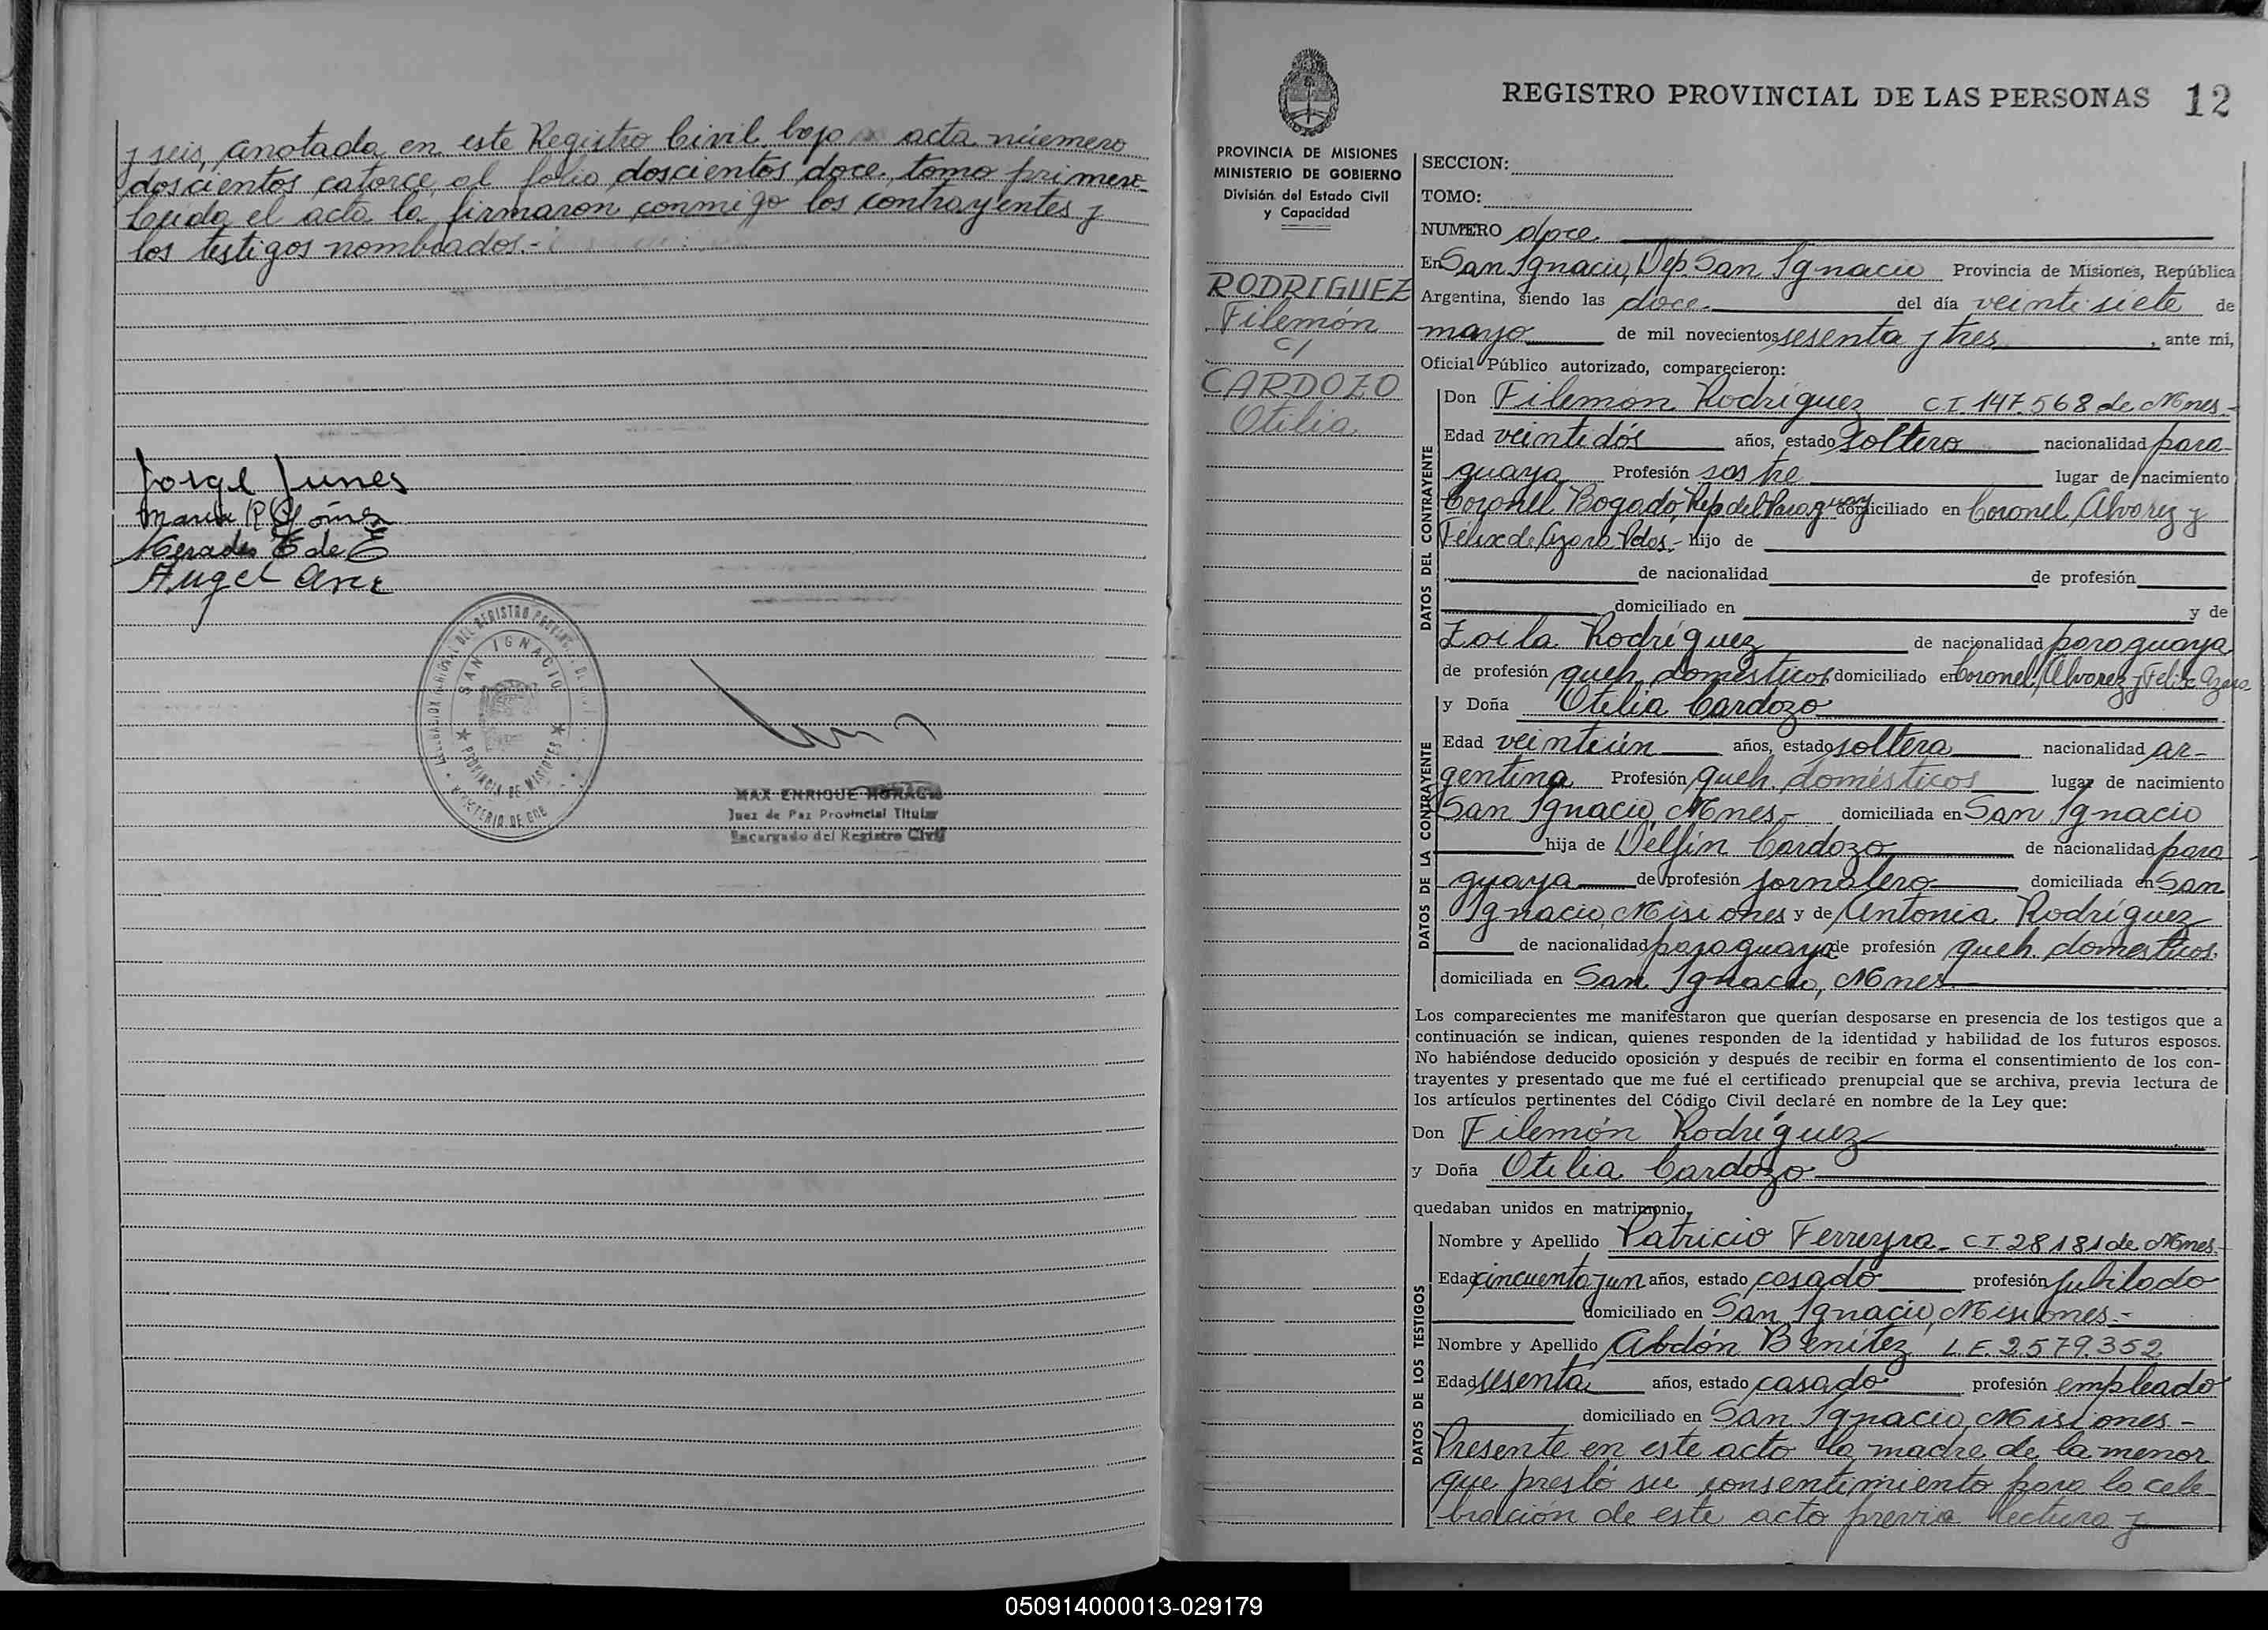 y seis, anotada en este Registro Civil bajo acta núemero
doscientos catorce al folio doscientos doce tomo primero-
Leida el acta la firmaron conmigo los contrayentes y
los testigos nombrados.-
Jorge Junes
Maria R Gómez
de E
Angel Arce
SAN IGNACIO
PROVINCIA DE MISIONES
MAX ENRIQUE HORACIO
Juez de Paz Provincial Titular
Encargado del Registro Civil
REGISTRO PROVINCIAL DE LAS PERSONAS 12
PROVINCIA DE MISIONES
MINISTERIO DE GOBIERNO
División del Estado Civil
y Capacidad
RODRIGUEZ
Filemón
c/
CARDOZO
Otilia
SECCION:
TOMO:
NUMERO doce
En San Ignacio, Dep. San Ignacio Provincia de Misiones, República
Argentina, siendo las doce del día veintisiete de
mayo de mil novecientos sesenta y tres, ante mi,
Oficial Público autorizado, comparecieron:
DATOS DEL CONTRAYENTE
Don Filemón Rodríguez C.I. 147.568 de Mnes.-
Edad veintidós años, estado soltero nacionalidad para-
guaya Profesión sastre lugar de nacimiento
Coronel Bogado, Rep. del Paraguay domiciliado en Coronel Alvarez y
Félix de Azara Pdos.- hijo de
de nacionalidad de profesión
domiciliado en y de
Zoila Rodríguez de nacionalidad paraguaya
de profesión queh. domésticos domiciliado en Coronel Alvarez y Félix Azara
DATOS DE LA CONTRAYENTE
y Doña Otilia Cardozo
Edad veintiún años, estado soltera nacionalidad ar-
gentina Profesión queh. domésticos lugar de nacimiento
San Ignacio, Mnes.- domiciliada en San Ignacio
hija de Delfín Cardozo de nacionalidad para
guaya de profesión jornalero domiciliada en San
Ignacio, Misiones y de Antonia Rodríguez
de nacionalidad paraguaya de profesión queh. domesticos.
domiciliada en San Ignacio, Mnes
Los comparecientes me manifestaron que querían desposarse en presencia de los testigos que a
continuación se indican, quienes responden de la identidad y habilidad de los futuros esposos.
No habiéndose deducido oposición y después de recibir en forma el consentimiento de los con-
trayentes y presentado que me fué el certificado prenupcial que se archiva, previa lectura de
los artículos pertinentes del Código Civil declaré en nombre de la Ley que:
Don Filemón Rodríguez
y Doña Otilia Cardozo
quedaban unidos en matrimonio.
DATOS DE LOS TESTIGOS
Nombre y Apellido Patricio Ferreyra- C I 28181 de Mnes.-
Edad cincuenta y un años, estado casado profesión jubilado
domiciliado en San Ignacio, Misiones.-
Nombre y Apellido Abdón Benítez L.E. 2.579.352
Edad sesenta años, estado casado profesión empleado
domiciliado en San Ignacio, Misiones-
Presente en este acto la madre de la menor
que prestó su consentimiento para la cele-
bración de este acto previa lectura y
050914000013-029179